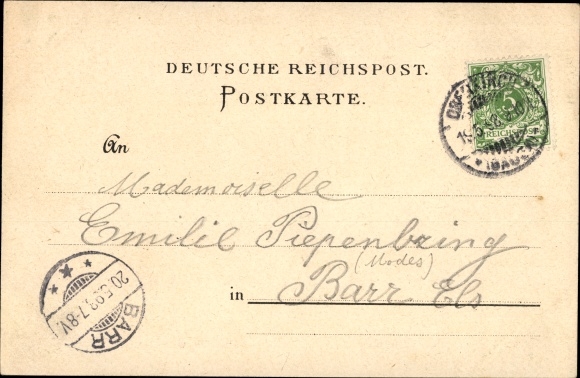 DEUTSCHE REICHSPOST.
POSTKARTE.
5
REICHSPOST
OBERKIRCH
(BADEN)
An
Mademoiselle
Emilie Piepenbring
(Modes)
in Barr Els
20.5.98.7-8V.
BARR